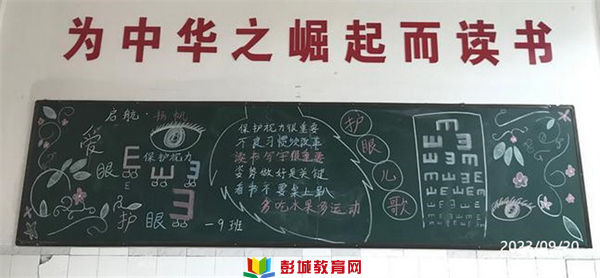 为中华之崛起而读书
启航·扬帆
爱
眼
护眼
E
E
E
保护视力
m
E
一9班
保护视力很重要
不良习惯快改革
读书写字很重要
姿势做好是关键
看书不要桌上趴
多吃水果多运动
护
眼
儿
歌
2023/09/20
彭城教育网